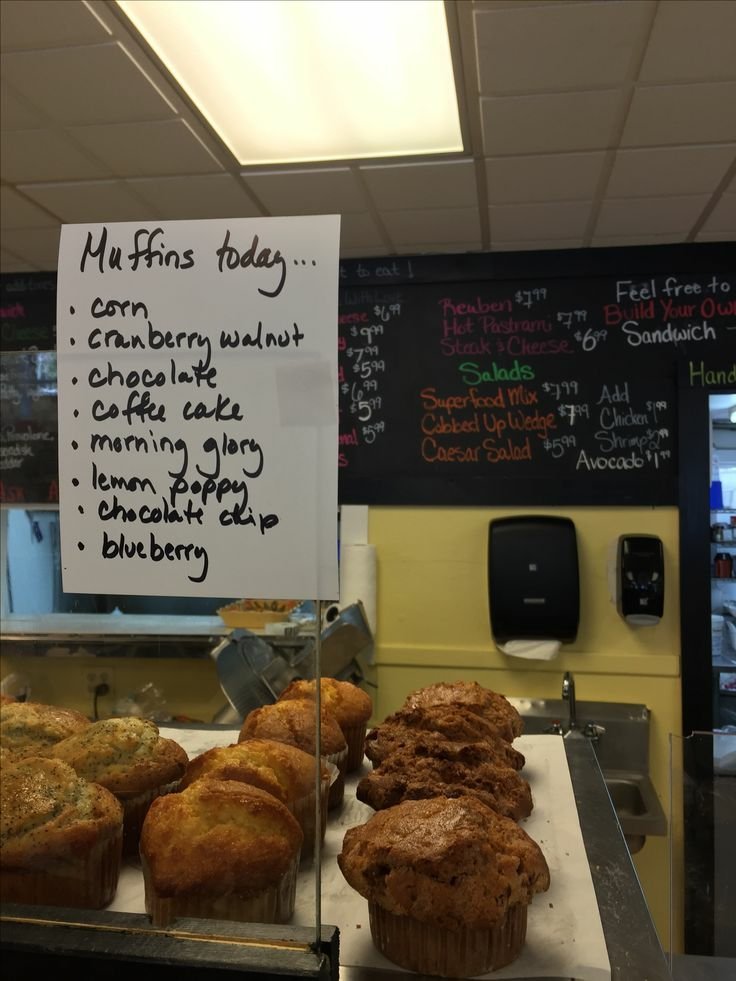 Muffins today...
• corn
• cranberry walnut
• chocolate
• coffee cake
• morning glory
• lemon poppy
• chocolate chip
• blueberry
t to eat!
$6.99
$9.99
$7.99
$5.99
$6.99
$5.99
$5.99
Reuben $7.99
Hot Pastrami $7.99
Steak & Cheese $6.99
Salads
Superfood Mix $7.99
Cobbed Up Wedge $7.99
Caesar Salad $5.99
Add
Chicken $1.99
Shrimp
Avocado $1.99
Feel free to
Build Your Own
Sandwich
Hand